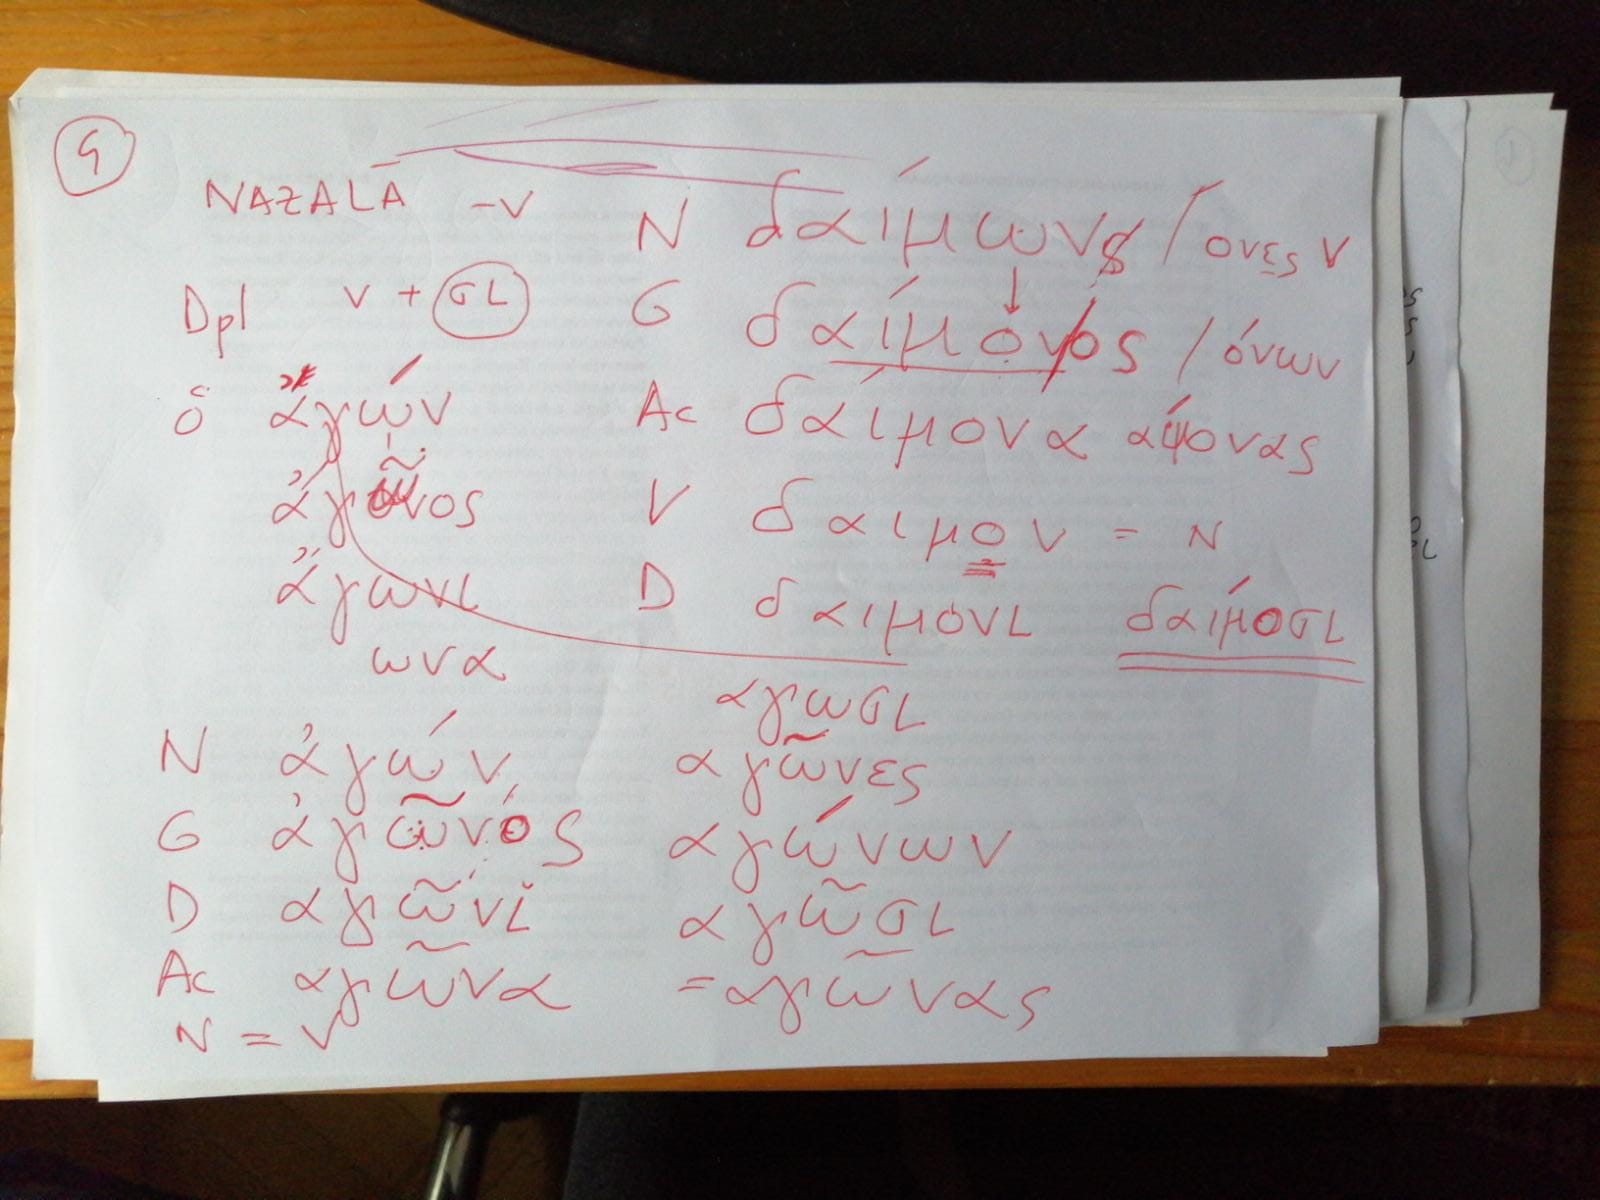 9
NAZALĂ -ν
Dpl ν + σι
ὁ ἀγών
ἀγῶνος
ἀγωνι
ωνα
N δαίμων / ονες V
G δαίμονος / όνων
Ac δαίμονα
V δαιμον = N
D δαιμονι δαίμοσι
αγωσι
N ἀγών αγῶνες
G ἀγῶνος αγώνων
D αγῶνι αγῶσι
Ac αγῶνα = αγῶνας
N = V